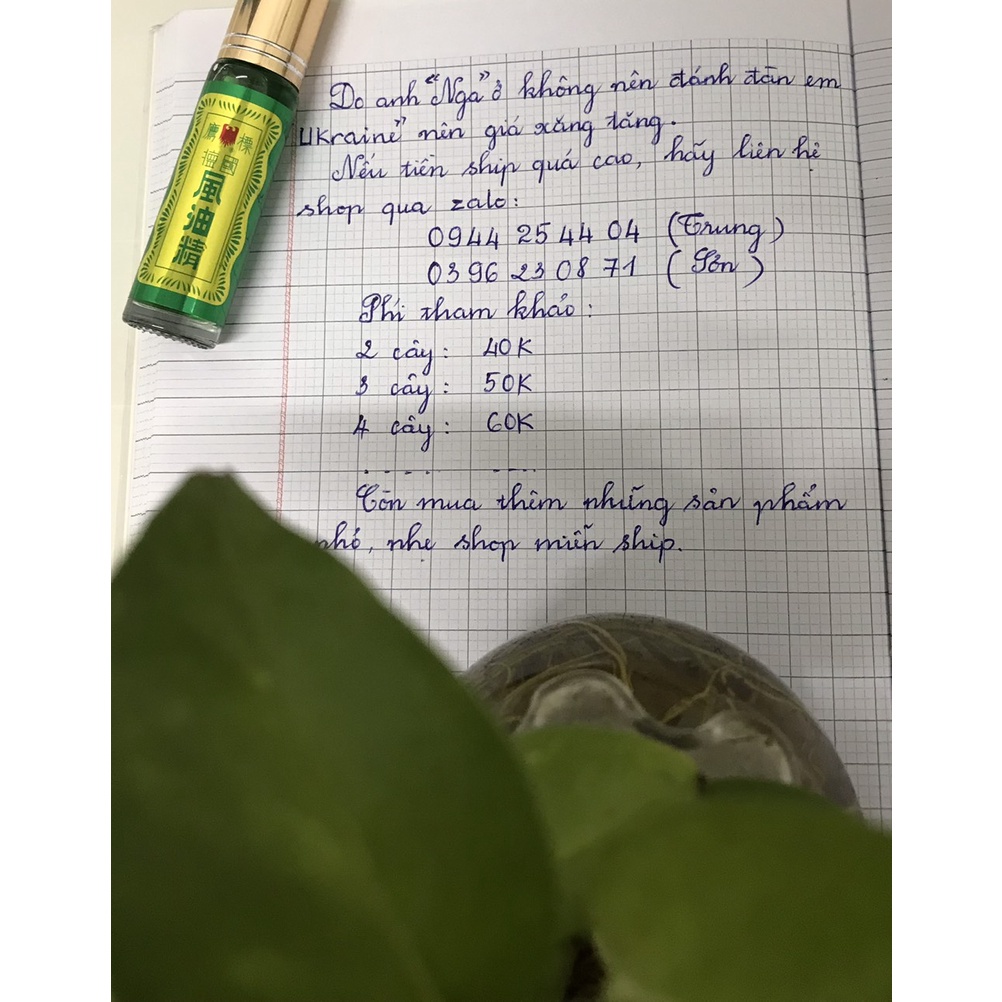 Do anh "Nga" ở không nên đánh đàn em
Ukraine" nên giá xăng tăng.
Nếu tiền ship quá cao, hãy liên hệ
shop qua zalo:
0944 25 44 04 (Trung)
0396 23 08 71 (Sơn)
Phí tham khảo:
2 cây: 40K
3 cây: 50K
4 cây: 60K
..... ....
Còn mua thêm những sản phẩm
nhỏ, nhẹ shop miễn ship.
鷹 標
德國
風油精